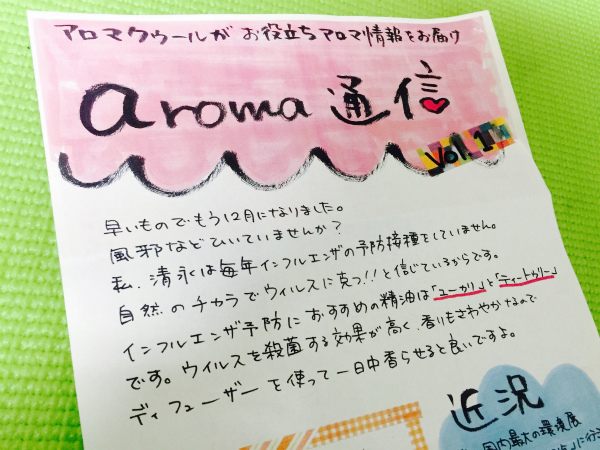 アロマクゥールが お役立ちアロマ情報をお届け
aroma 通信
vol.1
早いものでもう12月になりました。
風邪などひいていませんか？
私、清永は毎年インフルエンザの予防接種をしていません。
自然のチカラでウィルスに克つ!!と信じているからです。
インフルエンザ予防におすすめの精油は「ユーカリ」と「ティートゥリー」
です。ウィルスを殺菌する効果が高く、香りもさわやかなので
ディフューザーを使って一日中香らせると良いですよ。
近況
国内最大の環境展
に行